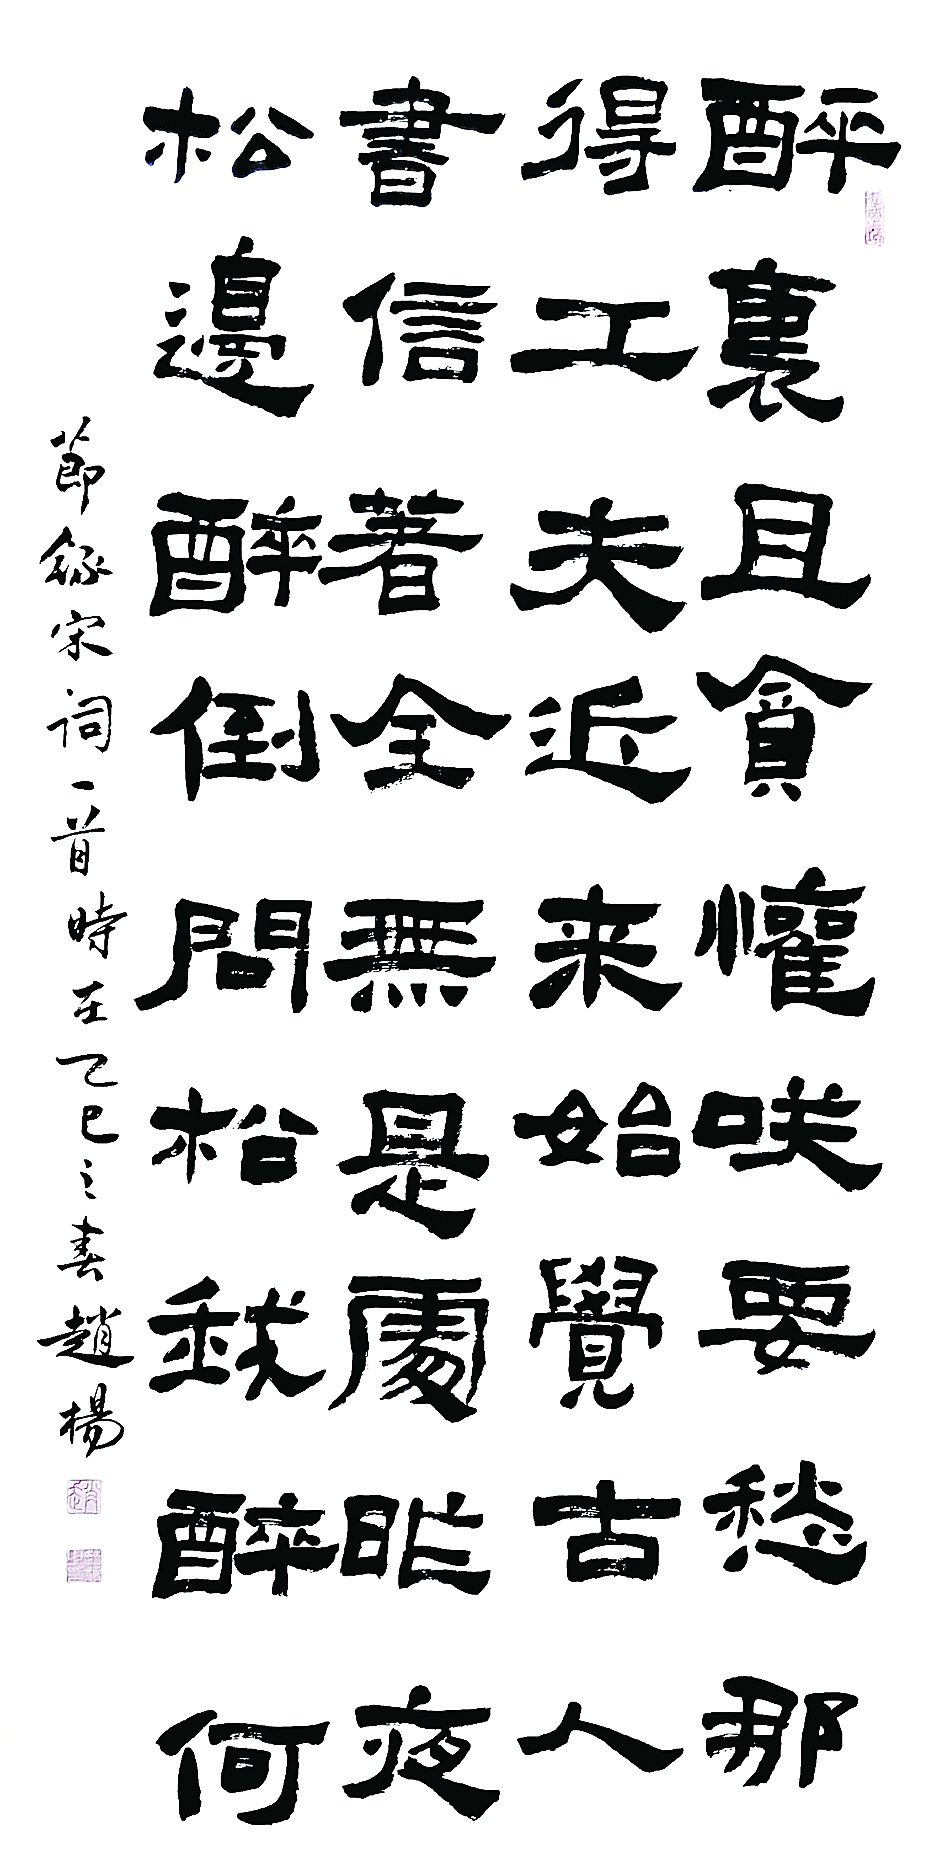 醉裏且貪懽咲要愁那
得工夫近来始覺古人
書信著全無是處昨夜
松邊醉倒問松我醉何
節録宋詞一首時在乙巳之春趙楊